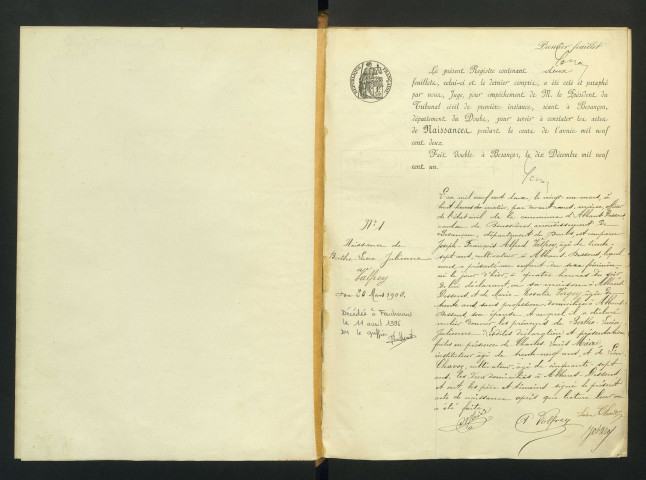 Premier feuillet
Le présent Registre contenant deux
feuillets, celui-ci et le dernier compris, a été coté et paraphé
par nous, Juge, pour empêchement de M. le Président du
Tribunal civil de première instance, séant à Besançon,
département du Doubs, pour servir à constater les actes
de Naissances pendant le cours de l'année mil neuf
cent deux.
Fait double à Besançon, le dix Décembre mil neuf
cent un.
N° 1
Naissance de
Berthe Julienne
Valfrey
Mars
Décédée à
le 11 avril
le greffier
L'an mil neuf cent deux, le vingt un mars, à
huit heures du matin, par devant nous, maire, officier
de l'état civil de la commune d'Abbans-Dessous,
canton de Boussières arrondissement de
Besançon, département du Doubs est comparu
Joseph François Alfred Valfrey, âgé de trente
sept ans, cultivateur à Abbans-Dessous, lequel
nous a présenté un enfant du sexe féminin,
né le jour d'hier, à quatre heures du soir
de lui déclarant, en sa maison à Abbans-
Dessous et de Marie âgée de
trente ans, sans profession, domiciliée à Abbans-
Dessous, son épouse et auquel il a déclaré
vouloir donner les prénoms de Berthe
Julienne. Lesdites déclaration et présentation
faites en présence de Charles Louis
instituteur âgé de trente-neuf ans, et de
cultivateur, âgé de cinquante sept
ans, les deux domiciliés à Abbans-Dessous.
Et ont, les père et témoins signé le présent
acte de naissance après que lecture leur en
a été faite.
A Valfrey